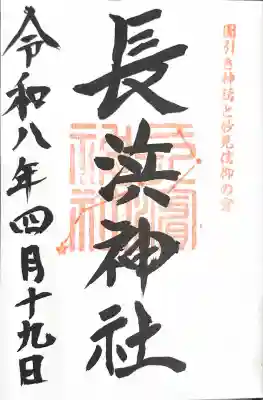 国引き神話と妙見信仰の宮
長浜神社
令和八年四月十九日